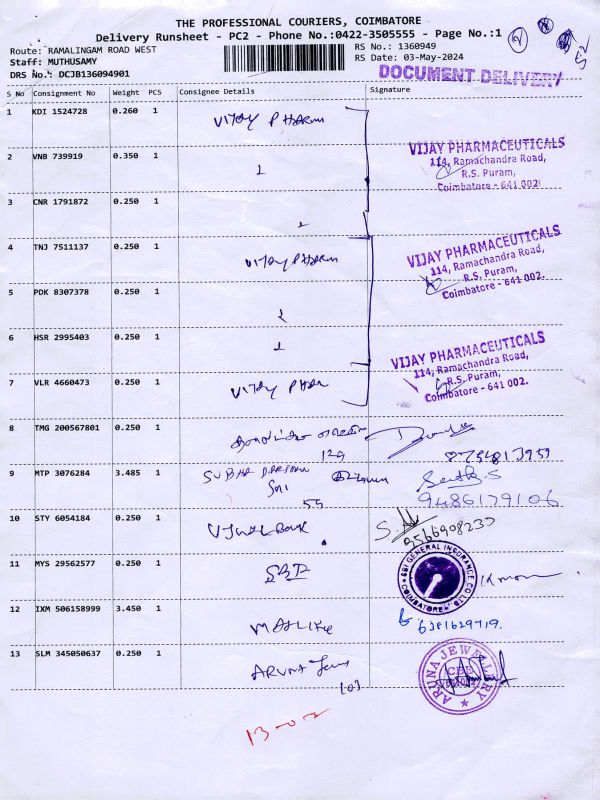 THE PROFESSIONAL COURIERS, COIMBATORE
Delivery Runsheet - PC2 - Phone No.:0422-3505555 - Page No.:1
Route: RAMALINGAM ROAD WEST
RS No.: 1360949
Staff: MUTHUSAMY
RS Date: 03-May-2024
DRS No.: DCJB136094901
DOCUMENT DELIVERY
2
52
S No Consignment No Weight PCS Consignee Details Signature
1 KDI 1524728 0.260 1 VIJAY PHARM
VIJAY PHARMACEUTICALS
114, Ramachandra Road,
R.S. Puram,
Coimbatore - 641 002.
2 VNB 739919 0.350 1
3 CNR 1791872 0.250 1
4 TNJ 7511137 0.250 1 VIJAY PHARM
VIJAY PHARMACEUTICALS
114, Ramachandra Road,
R.S. Puram,
Coimbatore - 641 002.
5 PDK 8307378 0.250 1
6 HSR 2995403 0.250 1
VIJAY PHARMACEUTICALS
114, Ramachandra Road,
R.S. Puram,
Coimbatore - 641 002.
7 VLR 4660473 0.250 1 VIJAY PHAR
8 TMG 200567801 0.250 1
129
9 MTP 3076284 3.485 1 SUBHA
55
9486179106
10 STY 6054184 0.250 1
11 MYS 29562577 0.250 1 SBI
SBI GENERAL INSURANCE CO LTD
COIMBATORE
12 IXM 506158999 3.450 1
13 SLM 345050637 0.250 1 ARUNA
ARUNA JEWELLERY
CBE